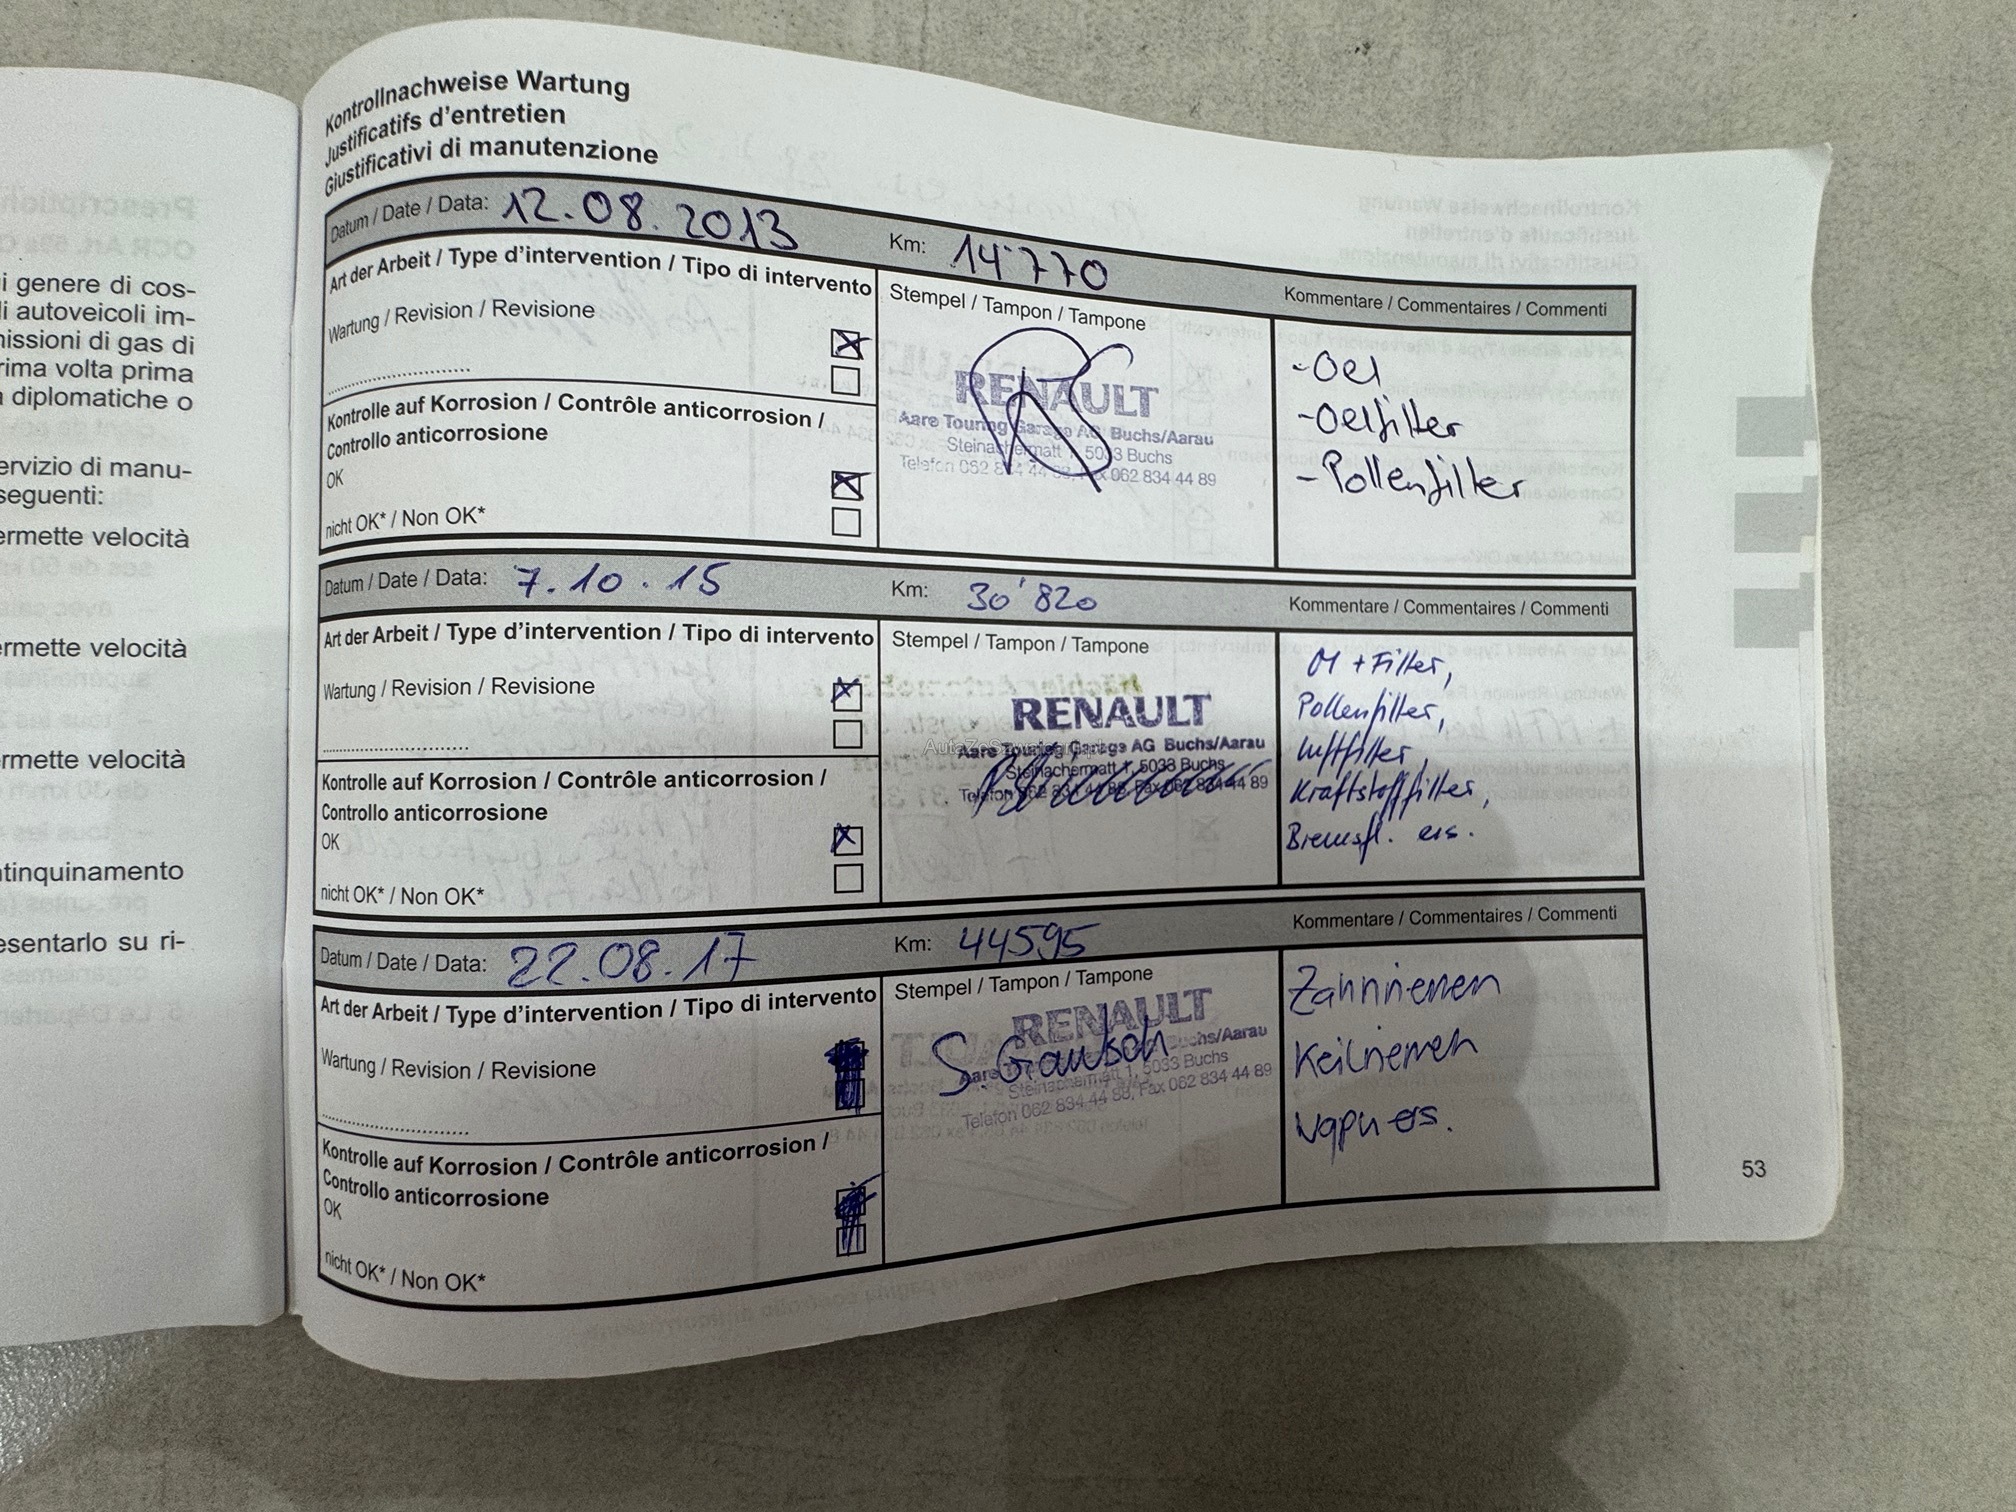 i genere di cos-
li autoveicoli im-
nissioni di gas di
rima volta prima
diplomatiche o
ervizio di manu-
seguenti:
ermette velocità
ermette velocità
ermette velocità
ntinquinamento
esentarlo su ri-
Kontrollnachweise Wartung
Justificatifs d'entretien
Giustificativi di manutenzione
Datum / Date / Data: 12.08.2013 Km: 14'770 Kommentare / Commentaires / Commenti
Art der Arbeit / Type d'intervention / Tipo di intervento
Wartung / Revision / Revisione
Kontrolle auf Korrosion / Contrôle anticorrosion /
Controllo anticorrosione
OK
nicht OK* / Non OK*
Stempel / Tampon / Tampone
RENAULT
Aare Touring Garage AG Buchs/Aarau
Steinachermatt 1, 5033 Buchs
Telefon 062 834 44 88, Fax 062 834 44 89
- Oel
- Oelfilter
- Pollenfilter
Datum / Date / Data: 7.10.15 Km: 30'820 Kommentare / Commentaires / Commenti
Art der Arbeit / Type d'intervention / Tipo di intervento
Wartung / Revision / Revisione
Kontrolle auf Korrosion / Contrôle anticorrosion /
Controllo anticorrosione
OK
nicht OK* / Non OK*
Stempel / Tampon / Tampone
RENAULT
Aare Touring Garage AG Buchs/Aarau
Steinachermatt 1, 5033 Buchs
Telefon 062 834 44 88, Fax 062 834 44 89
Öl + Filter,
Pollenfilter,
Luftfilter,
Kraftstofffilter,
Bremsfl. ers.
Datum / Date / Data: 22.08.17 Km: 44595 Kommentare / Commentaires / Commenti
Art der Arbeit / Type d'intervention / Tipo di intervento
Wartung / Revision / Revisione
Kontrolle auf Korrosion / Contrôle anticorrosion /
Controllo anticorrosione
OK
nicht OK* / Non OK*
Stempel / Tampon / Tampone
RENAULT
S. Gautsch
Aare Buchs/Aarau
Steinachermatt 1, 5033 Buchs
Telefon 062 834 44 88, Fax 062 834 44 89
Zahnriemen
Keilriemen
Wapu ers.
53